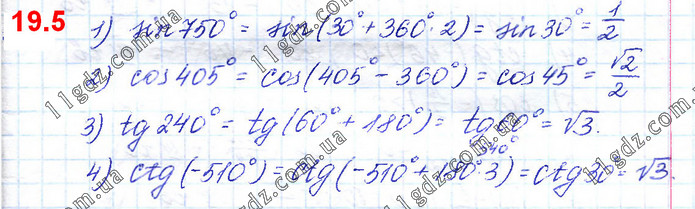 19.5
1) sin 750° = sin(30° + 360° · 2) = sin 30° = 1/2
2) cos 405° = cos(405° − 360°) = cos 45° = √2/2
3) tg 240° = tg(60° + 180°) = tg 60° = √3.
540°
4) ctg(−510°) = ctg(−510° + 180° · 3) = ctg 30° = √3.
11gdz.com.ua